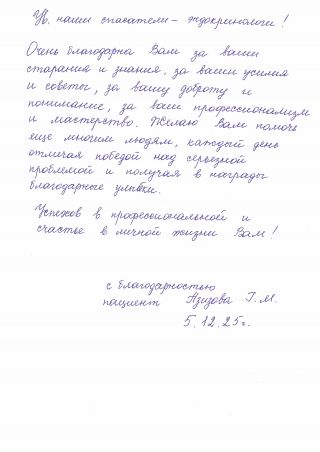 Ув. наши спасатели – эндокринологи!
Очень благодарна Вам за ваши
старания и знания, за ваши усилия
и советы, за вашу доброту и
понимание, за ваш профессионализм
и мастерство. Желаю Вам помочь
еще многим людям, каждый день
отличая победой над серьезной
проблемой и получая в награды
благодарные улыбки.
Успехов в профессиональной и
счастье в личной жизни Вам!
с благодарностью
пациент Азизова Г.М.
5.12.25г.